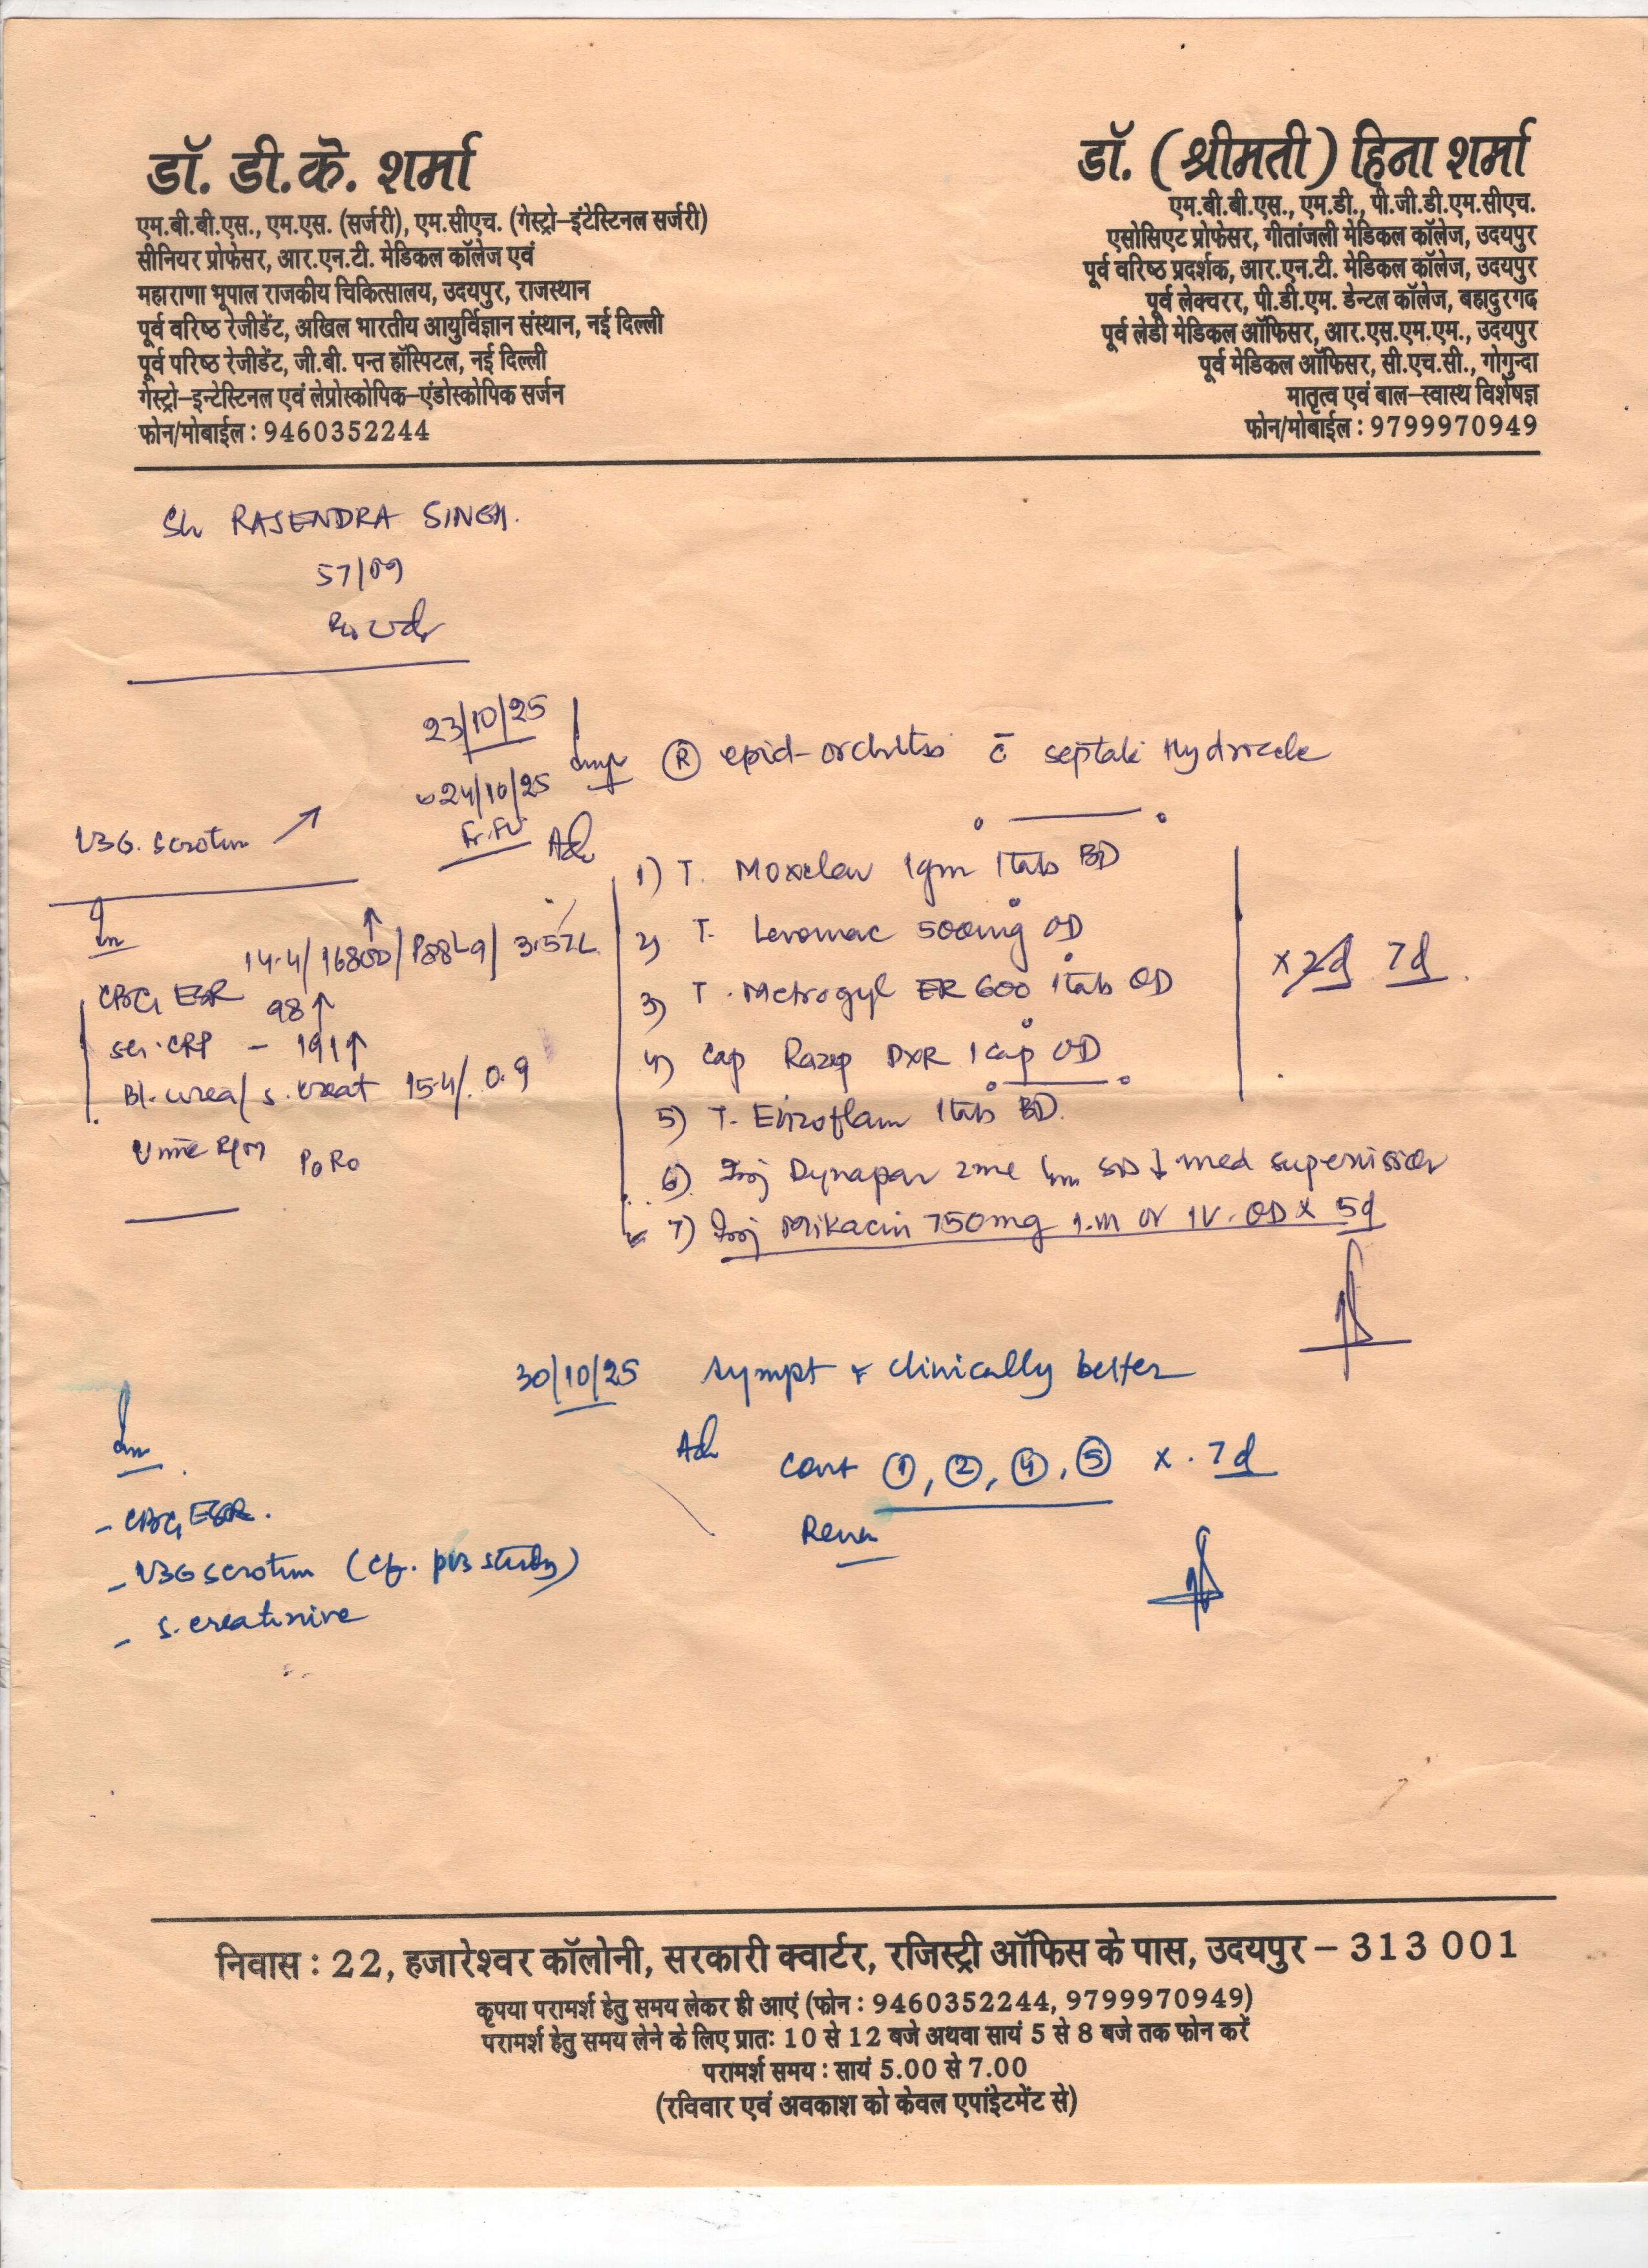 डॉ. डी.के. शर्मा
एम.बी.बी.एस., एम.एस. (सर्जरी), एम.सीएच. (गेस्ट्रो–इंटेस्टिनल सर्जरी)
सीनियर प्रोफेसर, आर.एन.टी. मेडिकल कॉलेज एवं
महाराणा भूपाल राजकीय चिकित्सालय, उदयपुर, राजस्थान
पूर्व वरिष्ठ रेजीडेंट, अखिल भारतीय आयुर्विज्ञान संस्थान, नई दिल्ली
पूर्व परिष्ठ रेजीडेंट, जी.बी. पन्त हॉस्पिटल, नई दिल्ली
गेस्ट्रो–इन्टेस्टिनल एवं लेप्रोस्कोपिक–एंडोस्कोपिक सर्जन
फोन/मोबाईल : 9460352244
डॉ. (श्रीमती) हिना शर्मा
एम.बी.बी.एस., एम.डी., पी.जी.डी.एम.सीएच.
एसोसिएट प्रोफेसर, गीतांजली मेडिकल कॉलेज, उदयपुर
पूर्व वरिष्ठ प्रदर्शक, आर.एन.टी. मेडिकल कॉलेज, उदयपुर
पूर्व लेक्चरर, पी.डी.एम. डेन्टल कॉलेज, बहादुरगढ
पूर्व लेडी मेडिकल ऑफिसर, आर.एस.एम.एम., उदयपुर
पूर्व मेडिकल ऑफिसर, सी.एच.सी., गोगुन्दा
मातृत्व एवं बाल–स्वास्थ विशेषज्ञ
फोन/मोबाईल : 9799970949
Sh RAJENDRA SINGH.
23/10/25
24/10/25
Ⓡ epid-orchitis c̄ septate Hydrocele
USG. scrotum
Adv
1) T. Moxclav 1gm 1tab BD
2) T. Levomac 500mg OD
3) T. Metrogyl ER 600 1tab OD
4) Cap Razep DXR 1cap OD
x 7d.
5) T. Enzoflam 1tab BD.
6) Inj Dynapar 2ml Im med supervision
7) Inj Mikacin 750mg I.M or IV. OD x 5d
14.4/16800/P88L9/3.52L
CBC, ESR 98↑
ser. CRP - 191↑
Bl. urea/ s. creat 15.4/ 0.9
Urine R/M P0R0
30/10/25 sympt & clinically better
Adv Cont ①, ②, ④, ⑤ x. 7d
- CBC, ESR.
- USG scrotum (cf. pvs study)
- s. creatinine
निवास : 22, हजारेश्वर कॉलोनी, सरकारी क्वार्टर, रजिस्ट्री ऑफिस के पास, उदयपुर – 313 001
कृपया परामर्श हेतु समय लेकर ही आएं (फोन : 9460352244, 9799970949)
परामर्श हेतु समय लेने के लिए प्रातः 10 से 12 बजे अथवा सायं 5 से 8 बजे तक फोन करें
परामर्श समय : सायं 5.00 से 7.00
(रविवार एवं अवकाश को केवल एपांइेटमेंट से)